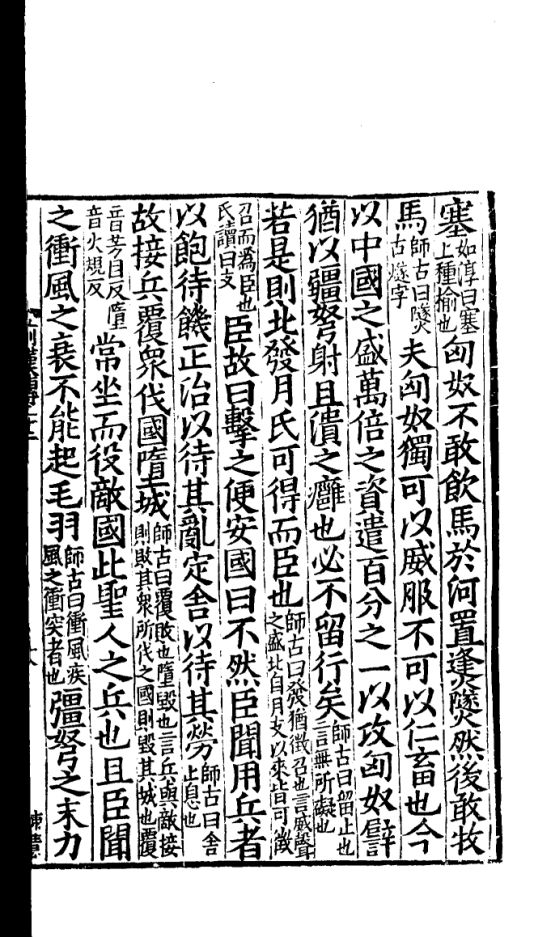 塞如淳曰塞上種榆也匈奴不敢飲馬於河置逢㷭然後敢牧
馬師古曰㷭古燧字夫匈奴獨可以威服不可以仁畜也今
以中國之盛萬倍之資遣百分之一以攻匈奴譬
猶以彊弩射且潰之癰也必不留行矣師古曰留止也言無所礙也
若是則北發月氏可得而臣也師古曰發猶徵召也言威聲之盛北自月支以來皆可徵
召而爲臣也氏讀曰支臣故曰擊之便安國曰不然臣聞用兵者
以飽待饑正治以待其亂定舍以待其勞師古曰舍止息也
故接兵覆衆伐國墮城師古曰覆敗也墮毀也言兵與敵接則敗其衆所伐之國則毀其城也覆
音芳目反墮音火規反常坐而役敵國此聖人之兵也且臣聞
之衝風之衰不能起毛羽師古曰衝風疾風之衝突者也彊弩之末力